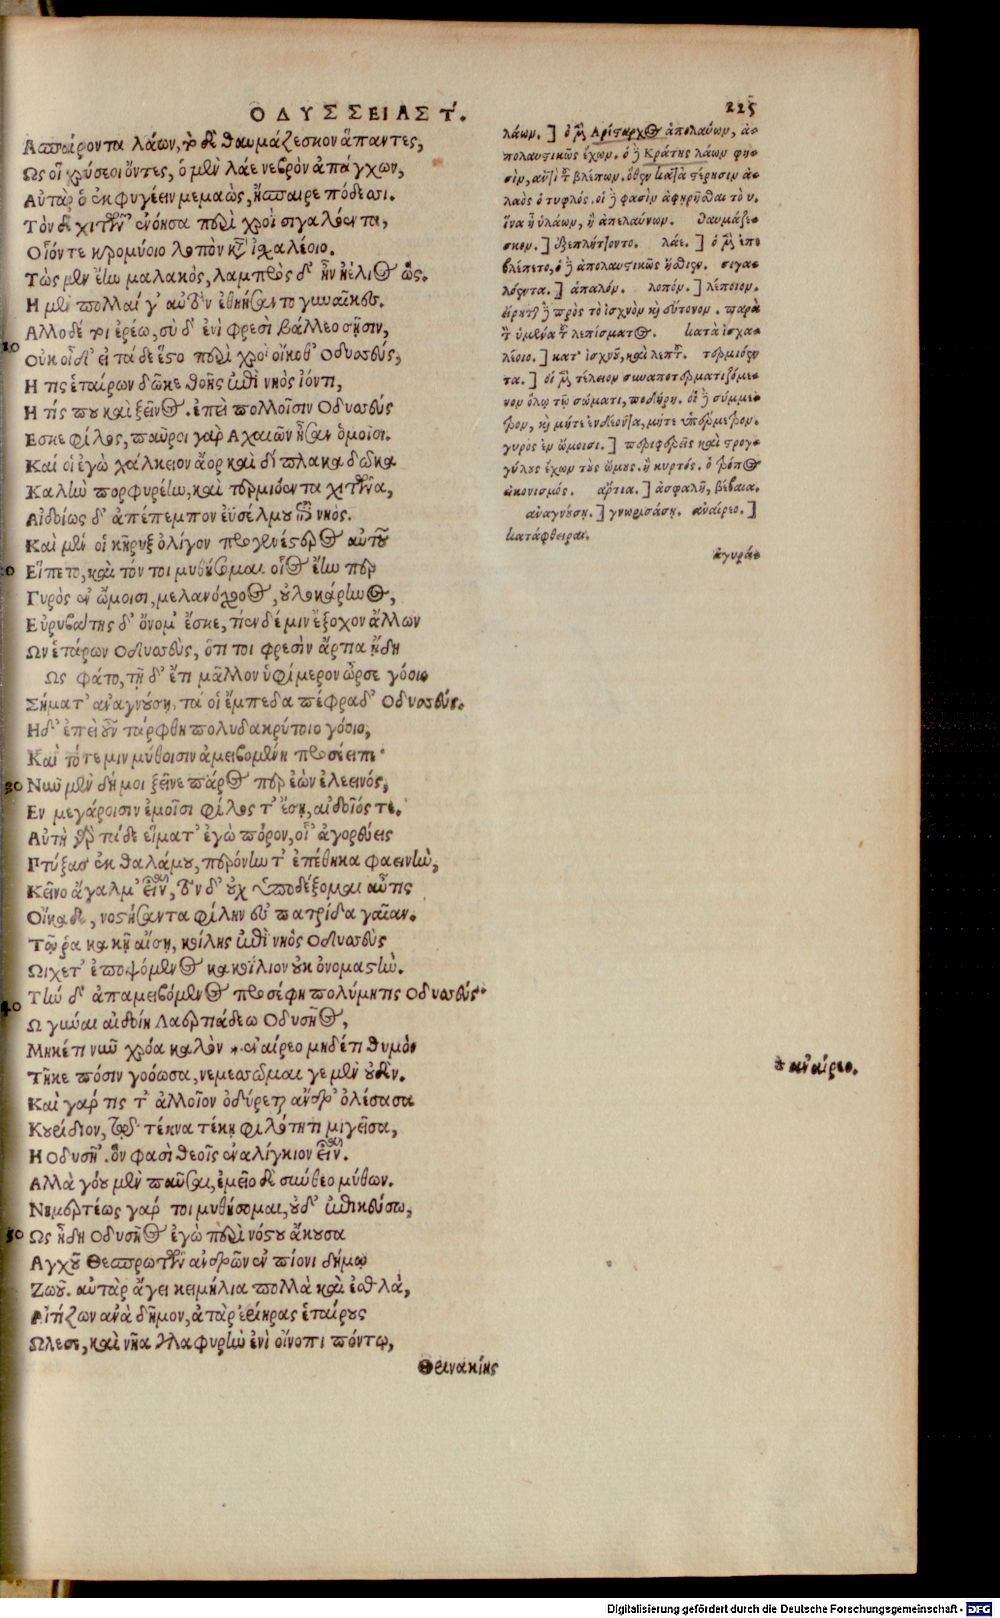 ΟΔΥΣΣΕΙΑΣ Τ.
225
Ασπαίροντα λάων, τὸ δὲ θαυμάζεσκον ἅπαντες,
Ως οἱ χρύσεοι ὄντες, ὁ μὲν λάε νεβρὸν ἀπάγχων,
Αὐτὰρ ὁ ἐκφυγέειν μεμαὼς, ἤσπαιρε πόδεσσι.
Τὸν δὲ χιτῶν' ἐνόησα περὶ χροῒ σιγαλόεντα,
Οἷόν τε κρομύοιο λοπὸν κατ' ἰσχαλέοιο.
Τὼς μὲν ἔην μαλακὸς, λαμπρὸς δ' ἦν ἠέλιος ὥς.
Η μὲν πολλαί γ' αὐτὸν ἐθηήσαντο γυναῖκες.
Αλλο δέ τοι ἐρέω, σὺ δ' ἐνὶ φρεσὶ βάλλεο σῇσιν,
10
Οὐκ οἶδ' εἰ τάδε ἕστο περὶ χροῒ οἴκοθ' Οδυσσεύς,
Η τις ἑταίρων δῶκε θοῆς ἐπὶ νηὸς ἰόντι,
Η τίς που καὶ ξεῖνος. ἐπεὶ πολλοῖσιν Οδυσσεύς
Εσκε φίλος, παῦροι γὰρ Αχαιῶν ἦσαν ὁμοῖοι.
Καί οἱ ἐγὼ χάλκειον ἄορ καὶ δίπλακα δῶκα
Καλὴν πορφυρέην, καὶ τερμιόεντα χιτῶνα,
Αἰδοίως δ' ἀπέπεμπον ἐϋσέλμου ἐπὶ νηός.
Καὶ μέν οἱ κῆρυξ ὀλίγον προγενέστερος αὐτοῦ
20
Εἵπετο, καὶ τόν τοι μυθήσομαι οἷος ἔην περ
Γυρὸς ἐν ὤμοισι, μελανόχροος, οὐλοκάρηνος,
Εὐρυβάτης δ' ὄνομ' ἔσκε, τίεν δέ μιν ἔξοχον ἄλλων
Ων ἑτάρων Οδυσσεὺς, ὅτι οἱ φρεσὶν ἄρτια ᾔδη
Ως φάτο, τῇ δ' ἔτι μᾶλλον ὑφ' ἵμερον ὦρσε γόοιο
Σήματ' ἀναγνούσῃ, τά οἱ ἔμπεδα πέφραδ' Οδυσσεύς.
Ηδ' ἐπεὶ οὖν τάρφθη πολυδακρύτοιο γόοιο,
Καὶ τότε μιν μύθοισιν ἀμειβομένη προσέειπε
30
Νῦν μὲν δή μοι ξεῖνε πάρος περ ἐὼν ἐλεεινός,
Εν μεγάροισιν ἐμοῖσι φίλος τ' ἔσῃ, αἰδοῖός τε.
Αὐτὴ γὰρ τάδε εἵματ' ἐγὼ πόρον, οἷ' ἀγορεύεις
Πτύξασ' ἐκ θαλάμου, περόνην τ' ἐπέθηκα φαεινὴν,
Κείνῳ ἄγαλμ' εἶναι, τὸν δ' οὐχ ὑποδέξομαι αὖτις
Οἴκαδε, νοστήσαντα φίλην ἐς πατρίδα γαῖαν.
Τῷ ῥα κακῇ αἴσῃ, κοίλης ἐπὶ νηὸς Οδυσσεὺς
Ωιχετ' ἐποψόμενος κακοΐλιον οὐκ ὀνομαστήν.
Τὴν δ' ἀπαμειβόμενος προσέφη πολύμητις Οδυσσεύς
40
Ω γύναι αἰδοίη Λαερτιάδεω Οδυσῆος,
Μηκέτι νῦν χρόα καλὸν * ἐναίρεο μηδέ τι θυμὸν
* ἀναίρεο.
Τῆκε πόσιν γοόωσα, νεμεσσῶμαι γε μὲν οὐδέν.
Καὶ γάρ τίς τ' ἀλλοῖον ὀδύρεται ἄνδρ' ὀλέσασα
Κουρίδιον, τῷ τέκνα τέκῃ φιλότητι μιγεῖσα,
Η Οδυσῆ'. ὅν φασὶ θεοῖς ἐναλίγκιον εἶναι.
Αλλὰ γόου μὲν παῦσαι, ἐμεῖο δὲ σύνθεο μύθων.
Νημερτέως γάρ τοι μυθήσομαι, οὐδ' ἐπικεύσω,
50
Ως ἤδη Οδυσῆος ἐγὼ περὶ νόστου ἄκουσα
Αγχοῦ Θεσπρωτῶν ἀνδρῶν ἐν πίονι δήμῳ
Ζωοῦ. αὐτὰρ ἄγει κειμήλια πολλὰ καὶ ἐσθλά,
Αἰτίζων ἀνὰ δῆμον, ἀτὰρ ἐρίηρας ἑταίρους
Ωλεσε, καὶ νῆα γλαφυρὴν ἐνὶ οἴνοπι πόντῳ,
Θρινακίης
λάων. ] ὁ μὲν Αρίσταρχος ἀπολαύων, ἀ-
πολαυστικῶς ἔχων. ὁ δὲ Κράτης λάων φη-
σὶν, ἀντὶ τοῦ βλέπων. ὅθεν κατὰ στέρησιν ἀ-
λαὸς ὁ τυφλός. οἱ δὲ φασὶν ἀφῃρῆσθαι τὸ υ.
ἵνα ᾖ ὑλάων, ἢ ἀπελαύνων. θαυμάζε-
σκον. ] ἐξεπλήττοντο. λάε. ] ὁ μὲν ἐπε
βλέπετο, ὁ δὲ ἀπολαυστικῶς ἤσθιεν. σιγα-
λόεντα. ] ἁπαλόν. λοπόν. ] λέποιον.
εἴρηται δὲ πρὸς τὸ ἰσχνὸν καὶ εὔτονον. παρὰ
τοῦ ὑμένα τοῦ λεπίσματος. κατὰ ἰσχα-
λέοιο. ] κατ' ἰσχνοῦ, καὶ λεπτοῦ. τερμιόεν
τα. ] οἱ μὲν τέλειον συναποτερματιζόμε-
νον ὅλῳ τῷ σώματι, ποδήρη. οἱ δὲ σύμμε-
τρον, καὶ μήτε ἐνδέοντα, μήτε ὑπέρμετρον.
γυρὸς ἐν ὤμοισι. ] περιφερεῖς καὶ στρογ-
γύλους ἔχων τοὺς ὤμους. ἢ κυρτός. ὁ τρόπος
εἰκονισμός. ἄρτια. ] ἀσφαλῆ, βέβαια.
ἀναγνούσῃ. ] γνωρισάσῃ. ἀναίρεο. ]
κατάφθειραι.
ἀγυρά-
Digitalisierung gefördert durch die Deutsche Forschungsgemeinschaft - DFG